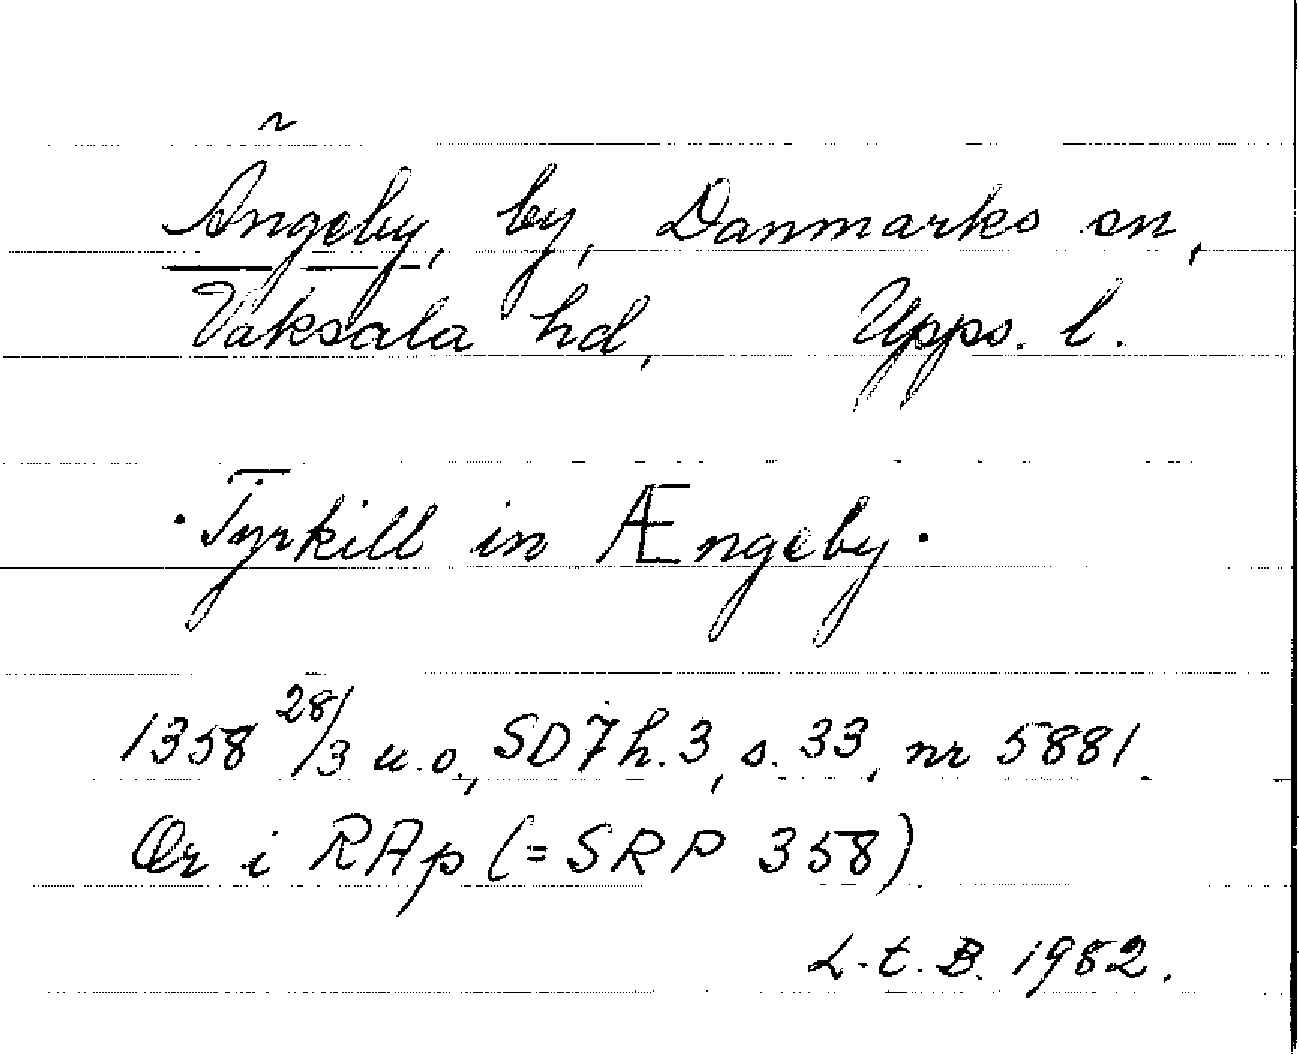 Ängeby, by, Danmarks sn,
Vaksala hd, Upps. l.
· Tyrkill in Ængeby ·
1358 28/3 u.o., SD 7 h. 3, s. 33, nr 5881.
Or i RAp (= SRP 358)
L. t. B. 1982.